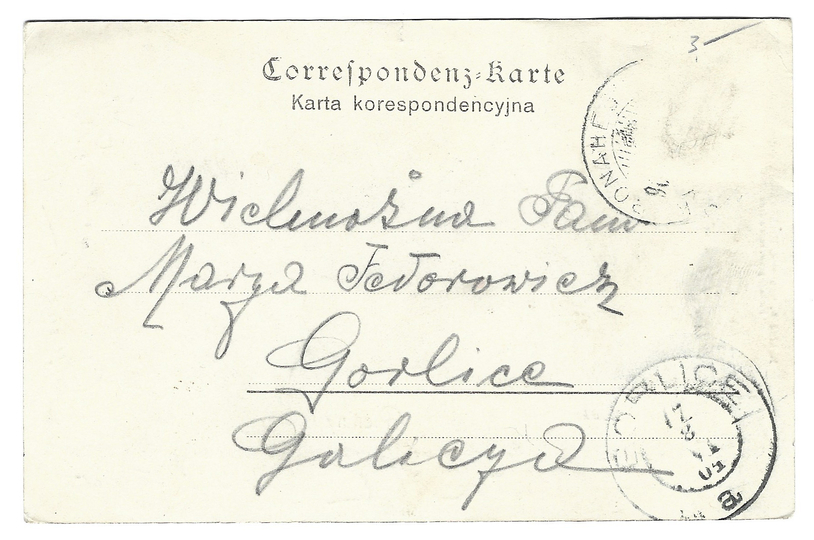 3,
Correspondenz-Karte
Karta korespondencyjna
Wielmożna Pani
Marya Fedorowicz
Gorlice
Galicya
GORLICE